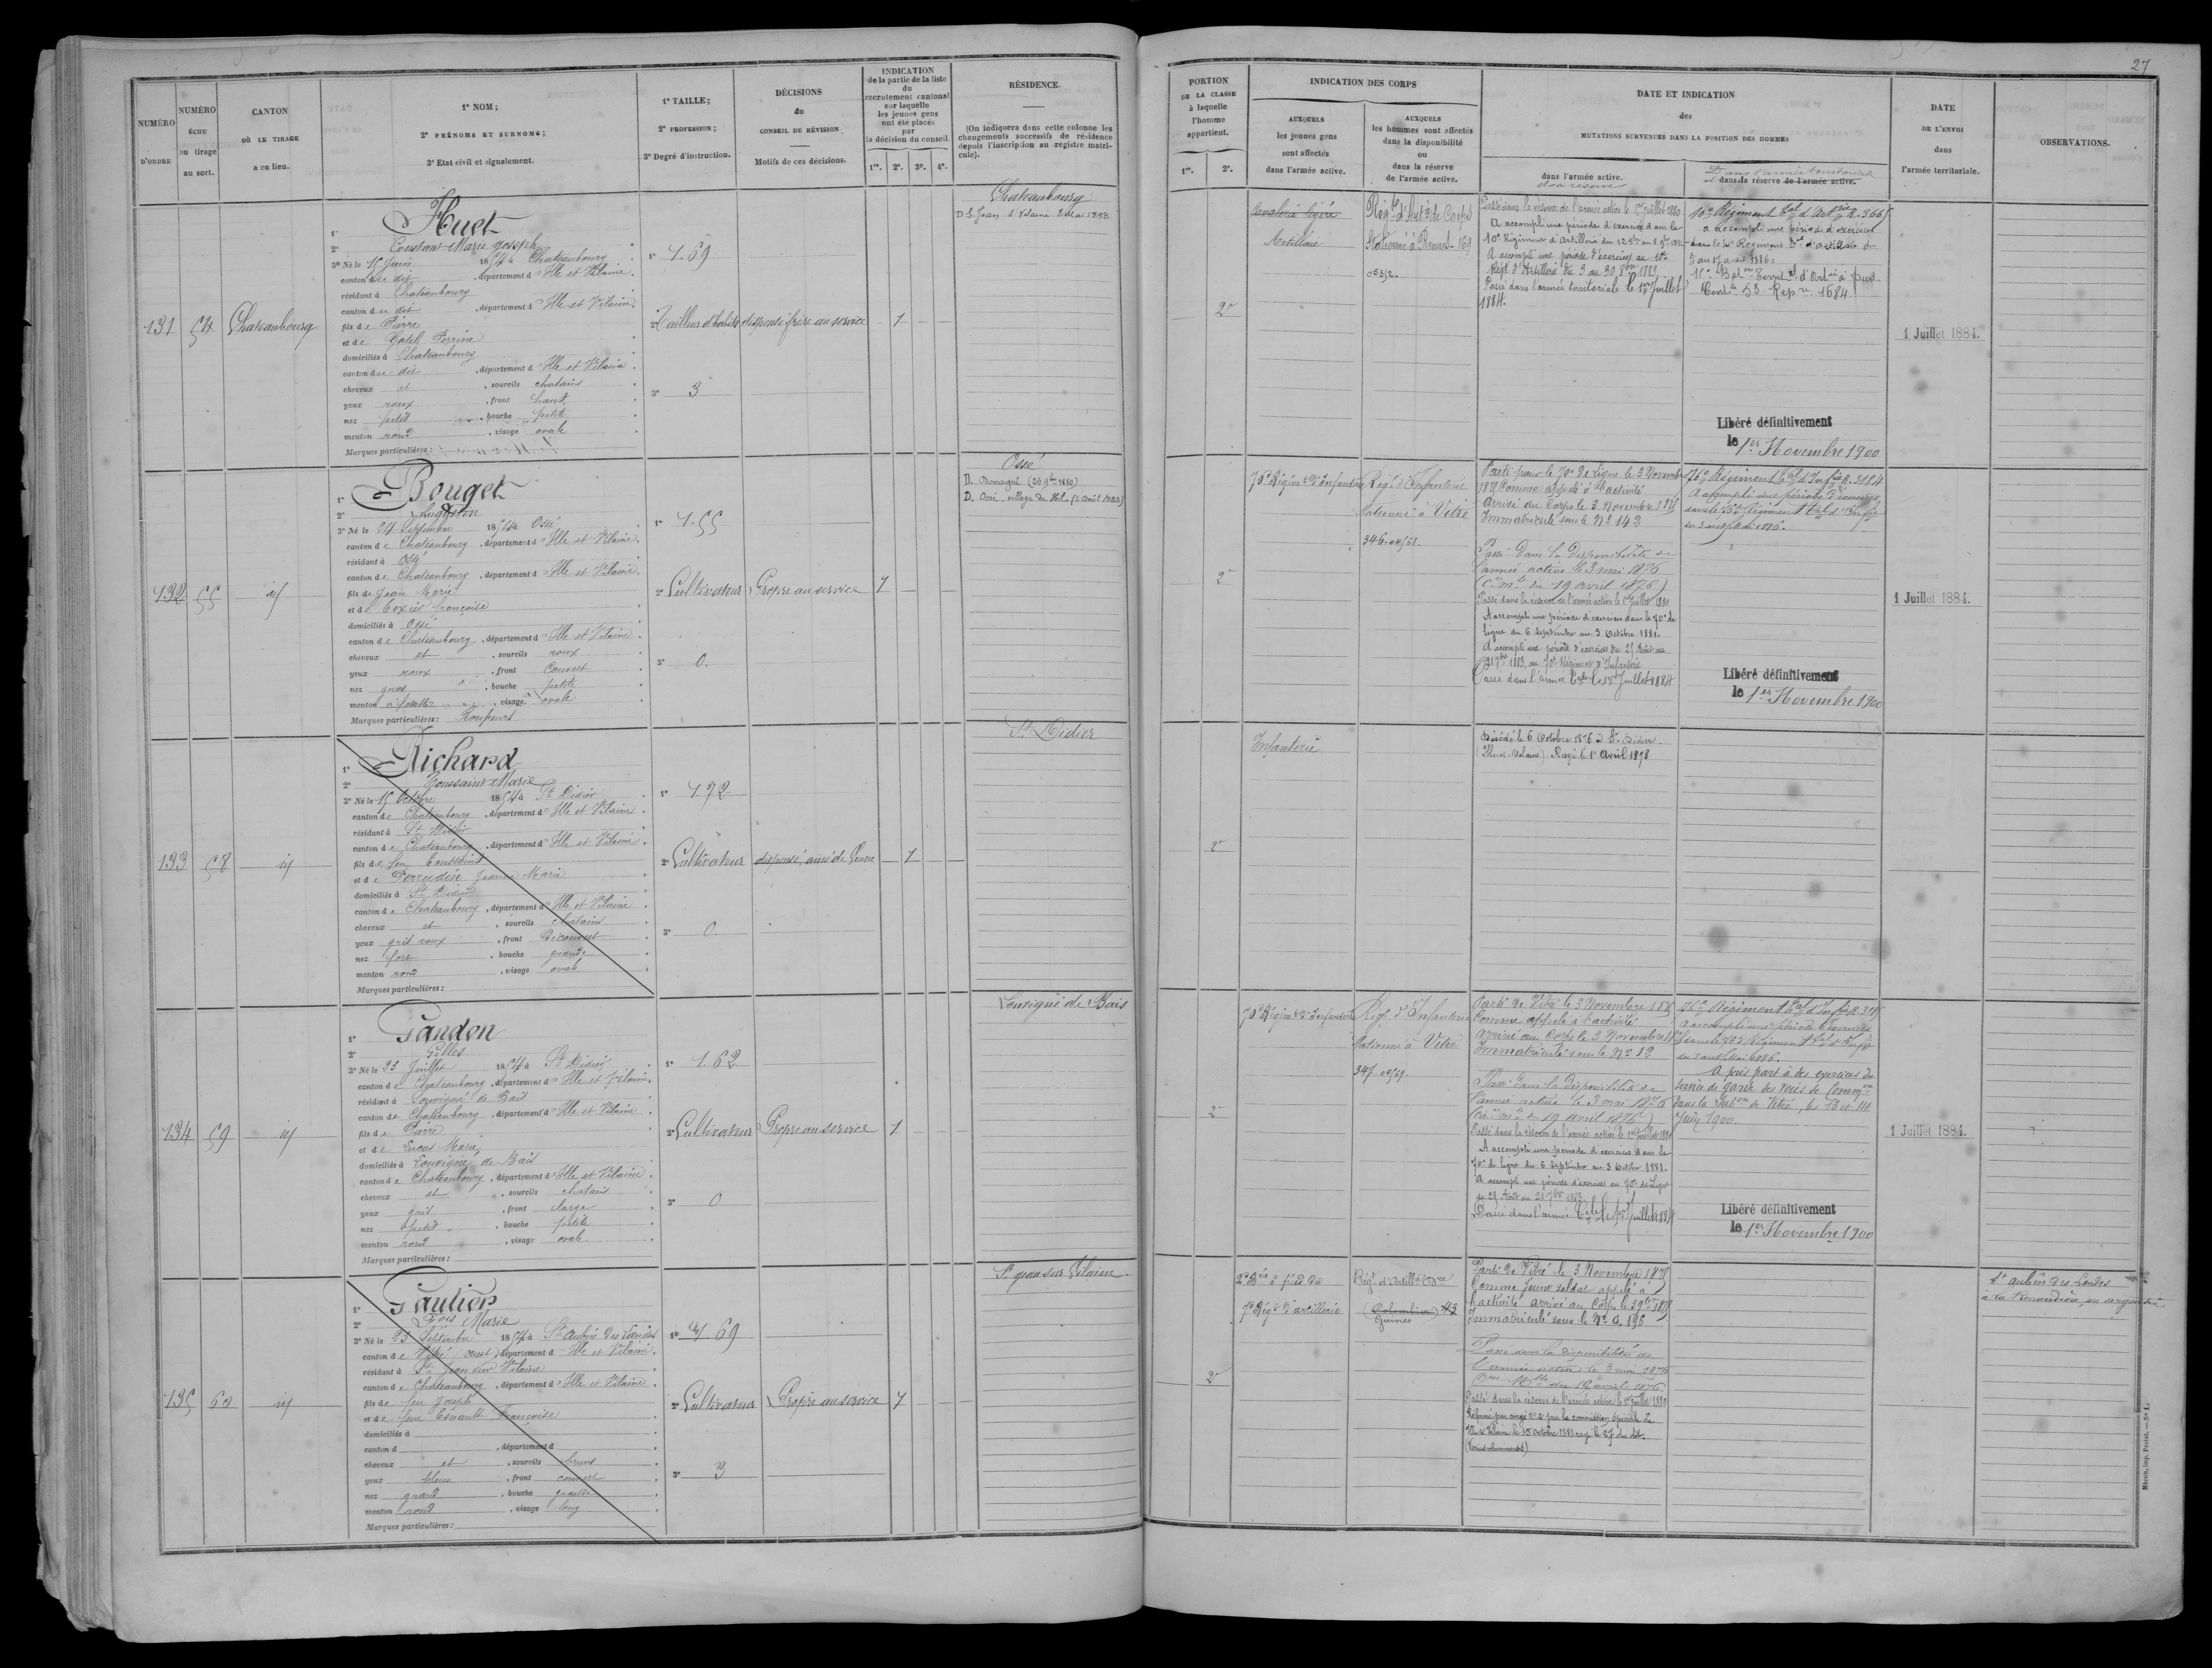 27
NUMÉRO D'ORDRE
NUMÉRO ÉCHU au tirage au sort.
CANTON OÙ LE TIRAGE a eu lieu.
1° NOM;
2° PRÉNOMS ET SURNOMS;
3° Etat civil et signalement.
1° TAILLE;
2° PROFESSION;
3° Degré d'instruction.
DÉCISIONS
du
CONSEIL DE RÉVISION
Motifs de ces décisions.
INDICATION
de la partie de la liste
du
recrutement cantonal
sur laquelle
les jeunes gens
ont été placés
par
la décision du conseil.
1re. 2e. 3e. 4e.
RÉSIDENCE.
(On indiquera dans cette colonne les
changements successifs de résidence
depuis l'inscription au registre matri-
cule).
PORTION
DE LA CLASSE
à laquelle
l'homme
appartient.
1re. 2e.
INDICATION DES CORPS
AUXQUELS
les jeunes gens
sont affectés
dans l'armée active.
AUXQUELS
les hommes sont affectés
dans la disponibilité
ou
dans la réserve
de l'armée active.
DATE ET INDICATION
des
MUTATIONS SURVENUES DANS LA POSITION DES HOMMES
dans l'armée active.
et sa réserve
Dans l'armée territoriale
et dans la réserve de l'armée active.
DATE
DE L'ENVOI
dans
l'armée territoriale.
OBSERVATIONS.
131 54 Chateaubourg
1° Huet
2° Constant Marie Joseph
3° Né le 15 Juin 1854 à Chateaubourg
canton du dit, département d'Ille et Vilaine.
résidant à Chateaubourg
canton du dit, département d'Ille et Vilaine.
fils de Pierre
et de Gatel Perrine
domiciliés à Chateaubourg
canton du dit, département d'Ille et Vilaine.
cheveux et, sourcils chatains
yeux roux, front haut
nez petit, bouche petite
menton rond, visage ovale
Marques particulières:
1° 1.69
2° Tailleur d'habits
3° 3
dispensé frère au service
1
Chateaubourg
D. S. Jean s/ Vilaine 8 Mai 1893
2e
Cavalerie légère
Artillerie
Régt d'Artie de Corps
Stationné à Rennes - 169
Passé dans la réserve de l'armée active le 1er juillet 1880
A accompli une période d'exercices dans le
10e Régiment d'Artillerie
A accompli une période d'exercices au 10e
Régt d'Artillerie du 3 au 30 8bre 1883
Passé dans l'armée territoriale le 1er Juillet
1884.
10e Régiment Tal d'Artrie n. 366
a accompli une période d'exercices
dans le 10e Régiment Tal d'artillerie du
5 au 17 avril 1886.
Libéré définitivement
le 1er Novembre 1900
1 Juillet 1884.
132 55 id
1° Bouget
2° Augustin
3° Né le 24 Septembre 1854 à Ossé
canton de Chateaubourg, département d'Ille et Vilaine.
résidant à Ossé
canton de Chateaubourg, département d'Ille et Vilaine.
fils de Jean Marie
et de Texier françoise
domiciliés à Ossé
canton de Chateaubourg, département d'Ille et Vilaine.
cheveux et, sourcils roux
yeux roux, front Couvert
nez gros, bouche petite
menton à fossette, visage ovale
Marques particulières: Rousseurs
1° 1.55
2° Cultivateur
3° 0.
Propre au service
1
Ossé
D. Romagné (26 9bre 1880)
2e
70e Régimt d'Infanterie
Régt d'Infanterie
stationné à Vitré
Parti pour le 70e de Ligne le 3 Novembre
1875 Comme appelé à l'activité
Arrivé au Corps le 3 Novembre 1875
Immatriculé sous le No 142
Passé dans la disponibilité de
l'armée active le 3 mai 1876
(Cre mlle du 19 avril 1876)
Passé dans la réserve de l'armée active le 1er Juillet 1880
A accompli une période d'exercices dans le 70e de
ligne du 6 Septembre au 3 Octobre 1881.
A accompli une période d'exercices du 25 Août au
21 7bre 1883, au 70e Régiment d'Infanterie
Passé dans l'armée Tale le 1er Juillet 1884
76e Régiment Tal d'Infie n. 3184
A accompli une période d'exercices
dans le 76e Régiment Tal d'Infie
Libéré définitivement
le 1er Novembre 1900
1 Juillet 1884.
133 58 id
1° Richard
2° Toussaint Marie
3° Né le 15 Octobre 1854 à St Didier
canton de Chateaubourg, département d'Ille et Vilaine.
résidant à St Didier
canton de Chateaubourg, département d'Ille et Vilaine.
fils de feu Toussaint
et de Perrudin Jeanne Marie
domiciliés à St Didier
canton de Chateaubourg, département d'Ille et Vilaine.
cheveux et, sourcils chatains
yeux gris roux, front Découvert
nez fort, bouche grande
menton rond, visage ovale
Marques particulières:
1° 1.72
2° Cultivateur
3° 0.
dispensé, ainé de Veuve
1
St Didier
2e
Infanterie
Décédé le 6 Octobre 1876 à St Didier
(Ille-et-Vilaine) Rayé le 1er Avril 1878
134 59 id
1° Gandon
2° Gilles
3° Né le 23 Juillet 1854 à St Didier
canton de Chateaubourg, département d'Ille et Vilaine.
résidant à Louvigné de Bais
canton de Chateaubourg, département d'Ille et Vilaine.
fils de Pierre
et de Lucas Marie
domiciliés à Louvigné de Bais
canton de Chateaubourg, département d'Ille et Vilaine.
cheveux et, sourcils chatains
yeux gris, front large
nez petit, bouche petite
menton rond, visage ovale
Marques particulières:
1° 1.62
2° Cultivateur
3° 0
Propre au service
1
Louvigné de Bais
2e
70e Régimt d'Infanterie
Régt d'Infanterie
stationné à Vitré
Parti de Vitré le 3 Novembre 1875
Comme appelé à l'activité
Arrivé au Corps le 3 Novembre
Immatriculé sous le No 12
Passé dans la disponibilité de
l'armée active le 3 mai 1876
(Cre mlle du 19 avril 1876)
Passé dans la réserve de l'armée active le 1er Juillet 1880
A accompli une période d'exercices dans le
70e de ligne du 6 Septembre au 3 Octobre 1881.
A accompli une période d'exercices au 70e de Ligne
du 25 Août au 21 7bre 1883.
Passé dans l'armée Tale le 1er Juillet 1884
76e Régiment Tal d'Infie
A accompli une période d'exercices
dans le 76e Régiment Tal d'Infie
A pris part à des exercices du
service de garde des voies de Common
dans la Subon de Vitré, les 13 et 14
Juin 1900
Libéré définitivement
le 1er Novembre 1900
1 Juillet 1884.
135 60 id
1° Gautier
2° Marie
3° Né le 23 Septembre 1854 à St Aubin des Landes
canton de Vitré (ouest) département d'Ille et Vilaine.
résidant à St Jean sur Vilaine
canton de Chateaubourg, département d'Ille et Vilaine.
fils de feu Joseph
et de feue Esnault Françoise
domiciliés à
canton d, département d
cheveux et, sourcils bruns
yeux bleus, front couvert
nez grand, bouche grande
menton rond, visage long
Marques particulières:
1° 1.69
2° Cultivateur
3° 3
Propre au service
1
St jean sur Vilaine
2e
2e Bie à pied du
7e Régt d'artillerie
Régt d'Artillie
Parti de Vitré le 3 Novembre 1875
Comme jeune soldat appelé à
l'activité arrivé au Corps le
Immatriculé sous le No
Passé dans la disponibilité de
l'armée active le 3 mai 1876
Cre Mlle du 19 avril 1876
Passé dans la réserve de l'armée active le 1er Juillet 1880
Réformé par congé No 2 par la commission spéciale de
l'Ille et Vilaine le 15 octobre 1881 rayé le 27 du dit.
St aubin des Landes
Mâcon, imp. Protat. — No 1.